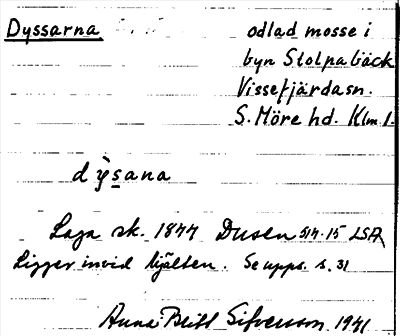 Dyssarna odlad mosse i
byn Stolpabäck
Vissefjärda sn.
S. Möre hd. Klm l.
dỳsana
Laga sk. 1844 Dusen 514.15 LSA
Ligger invid Mjälten. Se upps. s. 31
Anna-Britt Sifversson 1941